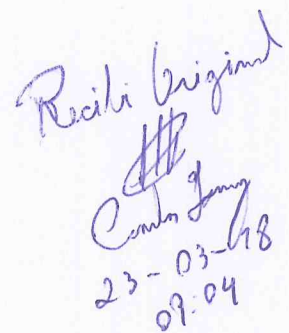 Recibi Original
Carlos
23-03-18
09:04